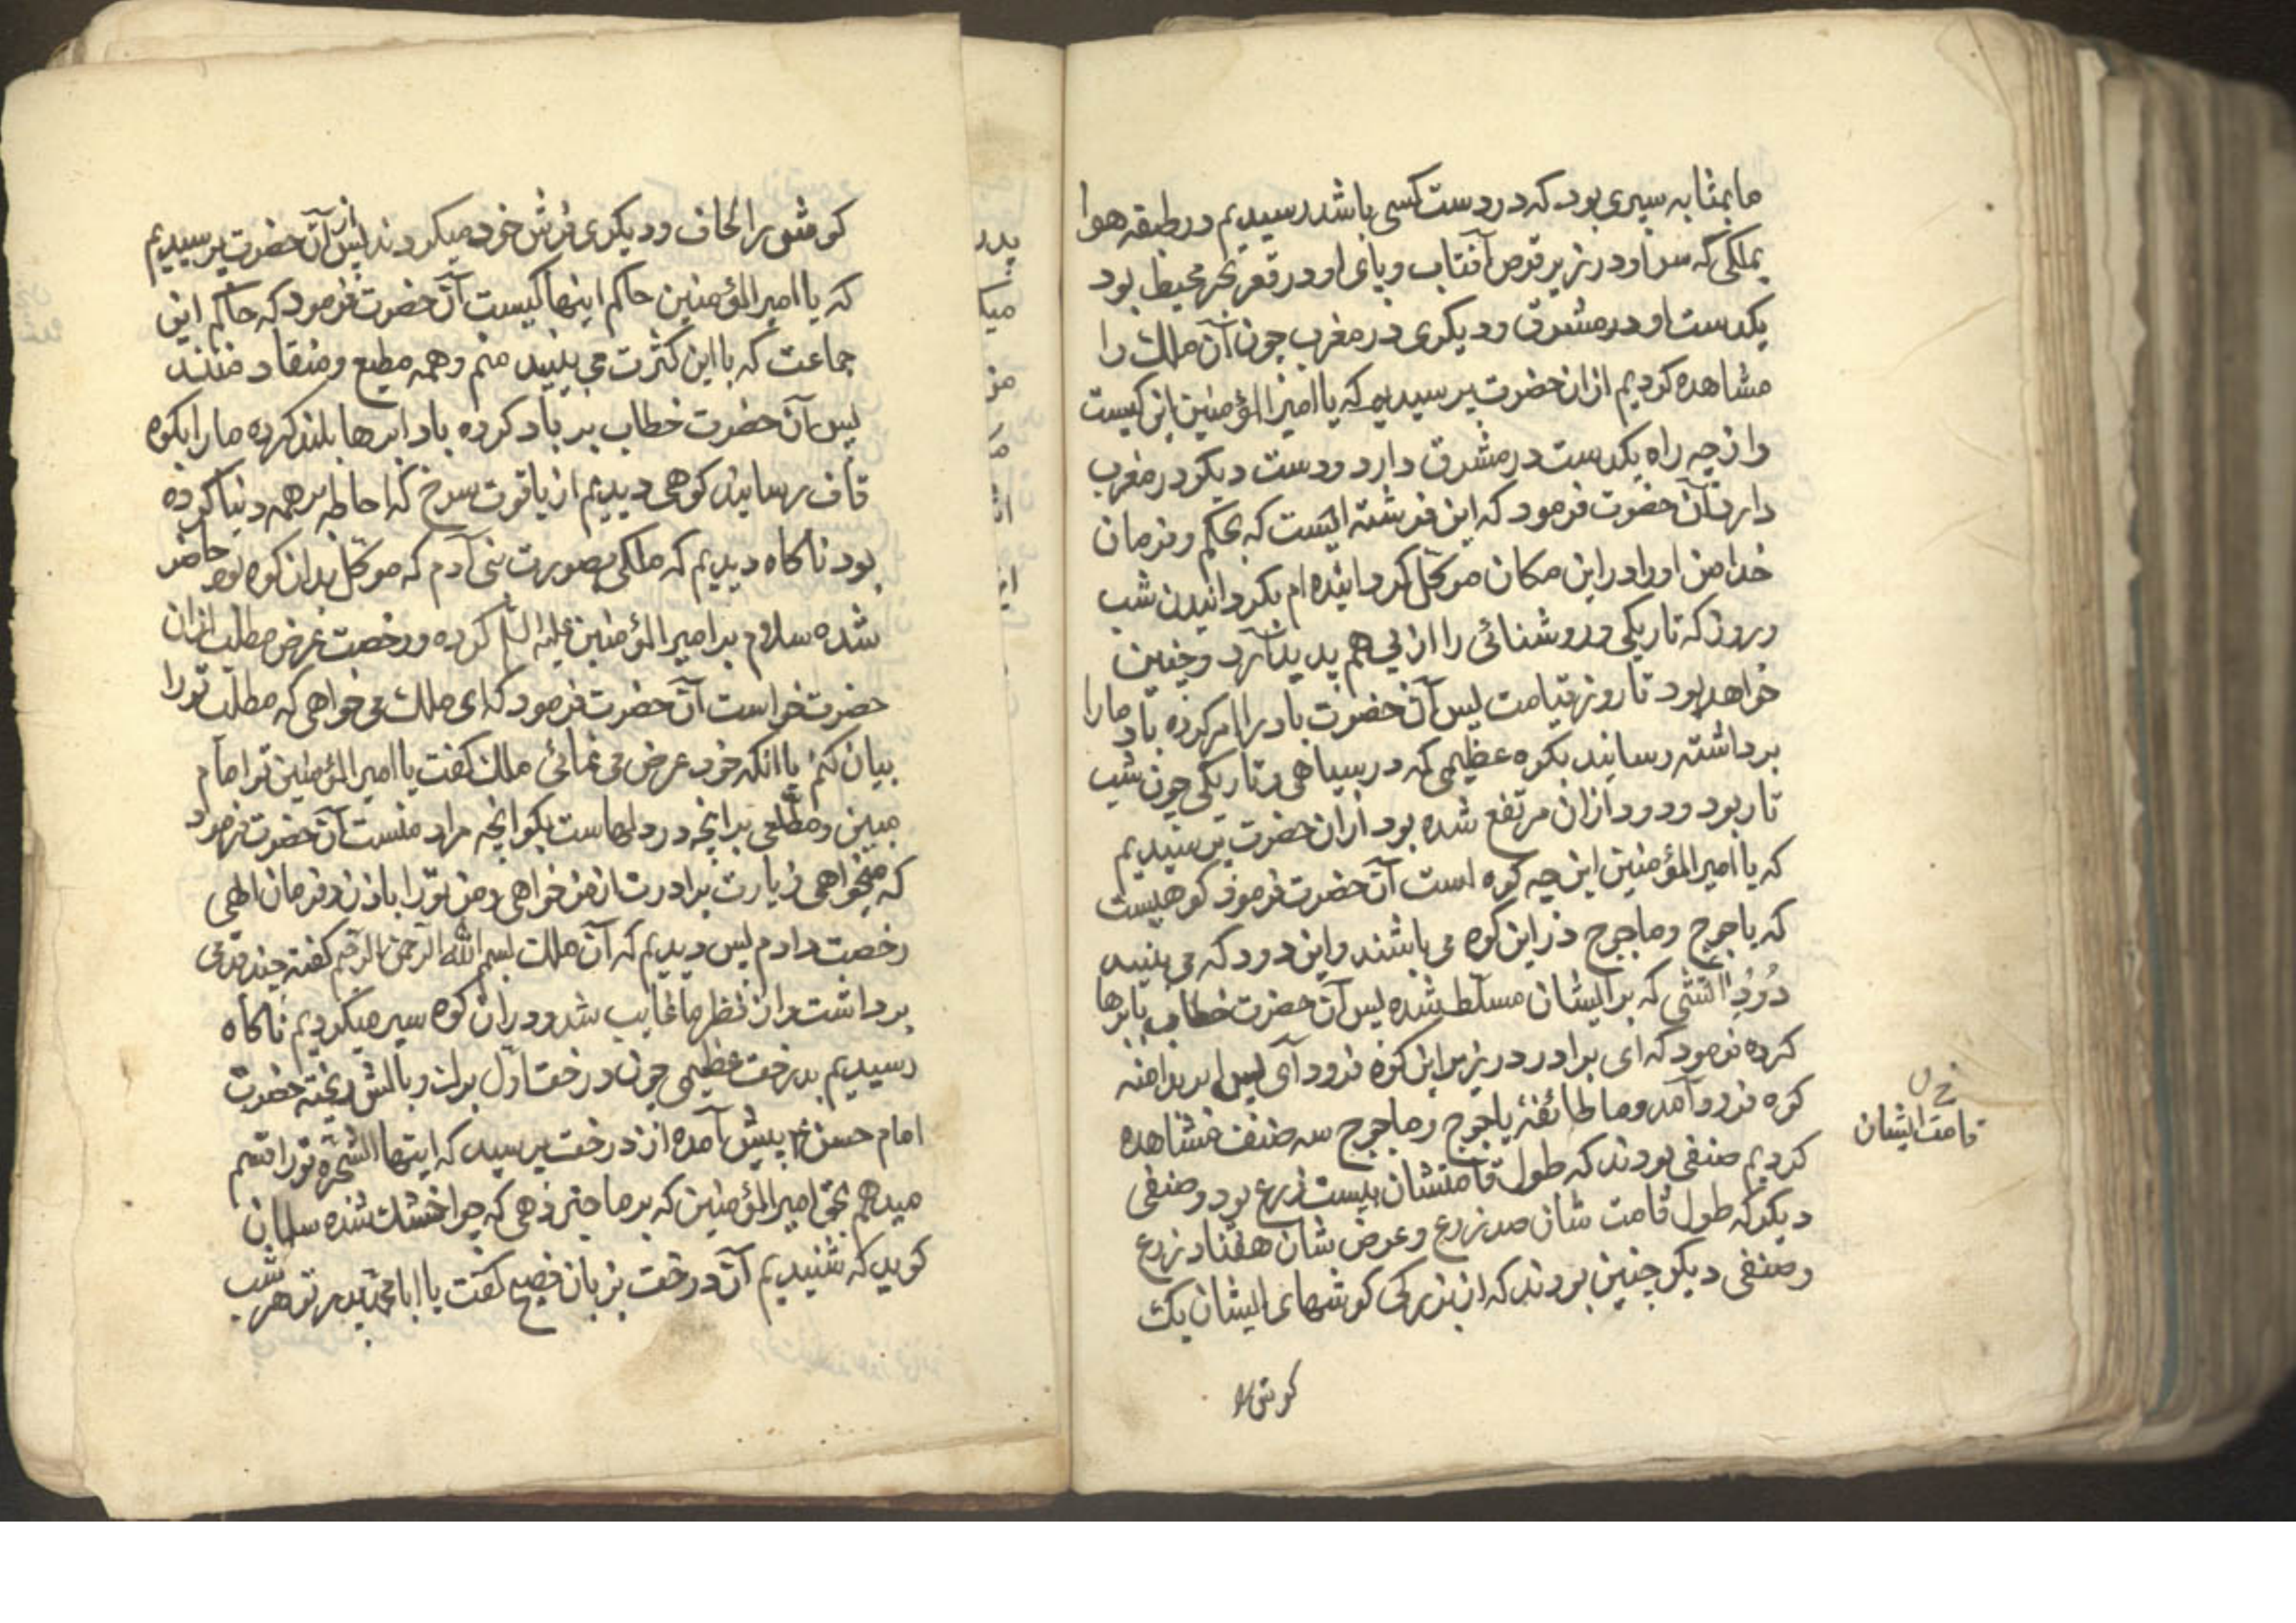 ما بمثابه سپری بود که در دست کسی باشد رسیدیم در طبقه هوا
بملکی که سر او در زیر قرص آفتاب و پای او در قعر بحر محیط بود
یکدست او در مشرق و دیکری در مغرب چون آن ملک را
مشاهده کردیم ازان حضرت پرسیدیم که یا امیرالمؤمنین این کیست
و از چه راه یکدست در مشرق دارد و دست دیکر در مغرب
دارد آن حضرت فرمود که این فرشته ایست که بحکم و فرمان
خدا من او را در این مکان موکل کردانیده ام بکردانیدن شب
و روز که تاریکی و روشنائی را از پی هم پدید آرد و چنین
خواهد بود تا روز قیامت پس آن حضرت باد را امر کرده باد ما را
برداشته رسانید بکوه عظیمی که در سیاهی و تاریکی چون شب
تار بود و دود ازان مرتفع شده بود ازان حضرت پرسیدیم
که یا امیرالمؤمنین این چه کوه است آن حضرت فرمود کوهیست
که یاجوج و ماجوج در این کوه می باشند و این دود که می بینید
دُودِ آتشی که بر ایشان مسلّط شده پس آن حضرت خطاب بابرها
کرده فرمود که ای برادر در زیر این کوه فرود آی پس ابر بدامنه
کوه فرود آمد و ما طائفهٔ یاجوج و ماجوج سه صنف مشاهده
قامت ایشان
کردیم صنفی بودند که طول قامتشان بیست زرع بود و صنفی
دیکر که طول قامت شان صد زرع و عرض شان هفتاد زرع
و صنفی دیکر چنین بودند که از بزرکی کوشهای ایشان یک
کوش را
کوش را لحاف و دیکری فرش خود میکردند پس ازآن حضرت پرسیدیم
که یا امیرالمؤمنین حاکم اینها کیست آن حضرت فرمود که حاکم این
جماعت که با این کثرت می بینید منم و همه مطیع و منقاد منند
پس آن حضرت خطاب بر باد کرده باد ابرها بلند کرده ما را بکوه
قاف رسانید کوهی دیدیم از یاقوت سرخ که احاطه بر همه دنیا کرده
بود ناکاه دیدیم که ملکی بصورت بنی آدم که موکل بدان کوه بود حاضر
شده سلام بر امیرالمؤمنین علیه السّلم کرده و رخصت عرض مطلب ازان
حضرت خواست آن حضرت فرمود که ای ملک می خواهی که مطلب تو را
بیان کنم یا انکه خود عرض می نمائی ملک کفت یا امیرالمؤمنین تو امام
مبین و مطّلعی برانچه در دلهاست بکو انچه مراد منست آن حضرت فرمود
که میخواهی زیارت برادرت از من خواهی و من تو را باذن و فرمان الهی
رخصت دادم پس دیدیم که آن ملک بسم الله الرحمن الرحیم کفته چند قدمی
برداشت و از نظر ما غایب شد و دران کوه سیر میکردیم ناکاه
رسیدیم بدرخت عظیمی چون درخت اول برک و بالش ریخته حضرت
امام حسن ع پیش آمده از درخت پرسید که ایتها الشّجره تو را قسم
میدهم بحق امیرالمؤمنین که بر ما خبر دهی که چرا خشک شده سلمان
کوید که شنیدیم آن درخت بزبان فصیح کفت یا ابا محمّد پدر تو هر شب